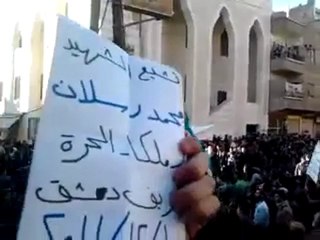 تشيع الشهيد
محمد رسلان
زملكا الحرة
ريف دمشق
٢٠١١/١٢/١